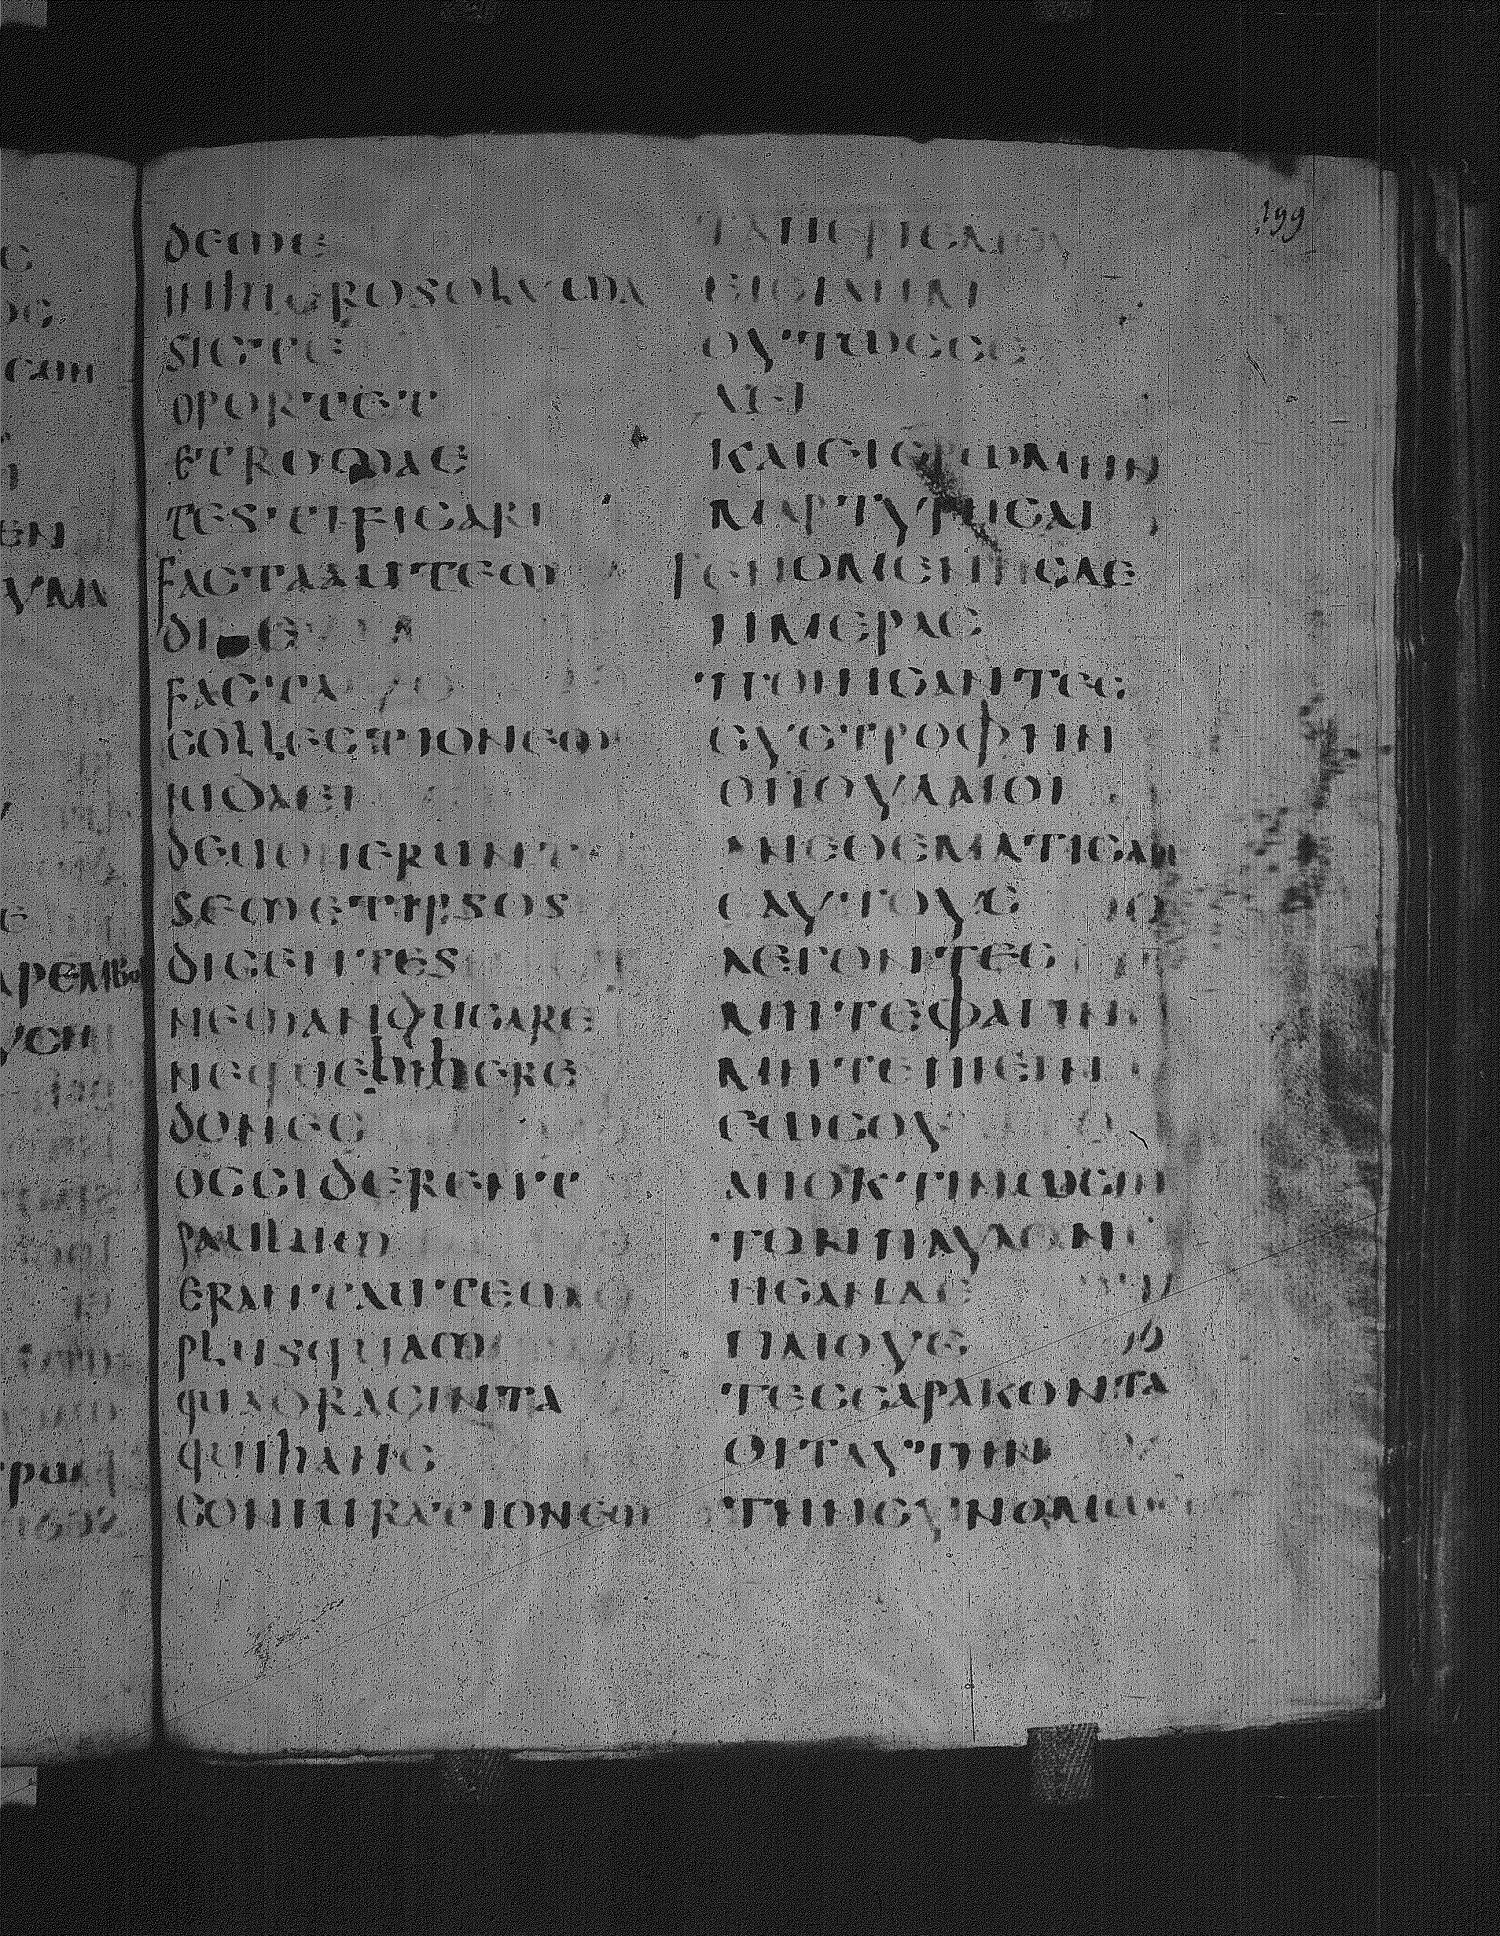 199
deme
inhierosolyma
sicte
oportet
etromae
testificari
factaautem
die
facta
collectionem
iudaei
deuouerunt
semetipsos
dicentes
nemanducare
nequebibere
donec
occiderent
paulum
erantautem
plusquam
quadraginta
quihanc
coniurationem
ΤΑΠΕΡΙΕΜΟΥ
ΕΙΣΙΛΗΜ
ΟΥΤΩΣΣΕ
ΔΕΙ
ΚΑΙΕΙΣΡΩΜΗΝ
ΜΑΡΤΥΡΗΣΑΙ
ΓΕΝΟΜΕΝΗΣΔΕ
ΗΜΕΡΑΣ
ΠΟΙΗΣΑΝΤΕΣ
ΣΥΣΤΡΟΦΗΝ
ΟΙΙΟΥΔΑΙΟΙ
ΑΝΕΘΕΜΑΤΙΣΑΝ
ΕΑΥΤΟΥΣ
ΛΕΓΟΝΤΕΣ
ΜΗΤΕΦΑΓΙΝ
ΜΗΤΕΠΙΕΙΝ
ΕΩΣΟΥ
ΑΠΟΚΤΙΝΩΣΙΝ
ΤΟΝΠΑΥΛΟΝ
ΗΣΑΝΔΕ
ΠΛΙΟΥΣ
ΤΕΣΣΑΡΑΚΟΝΤΑ
ΟΙΤΑΥΤΗΝ
ΤΗΝΣΥΝΟΜΩ